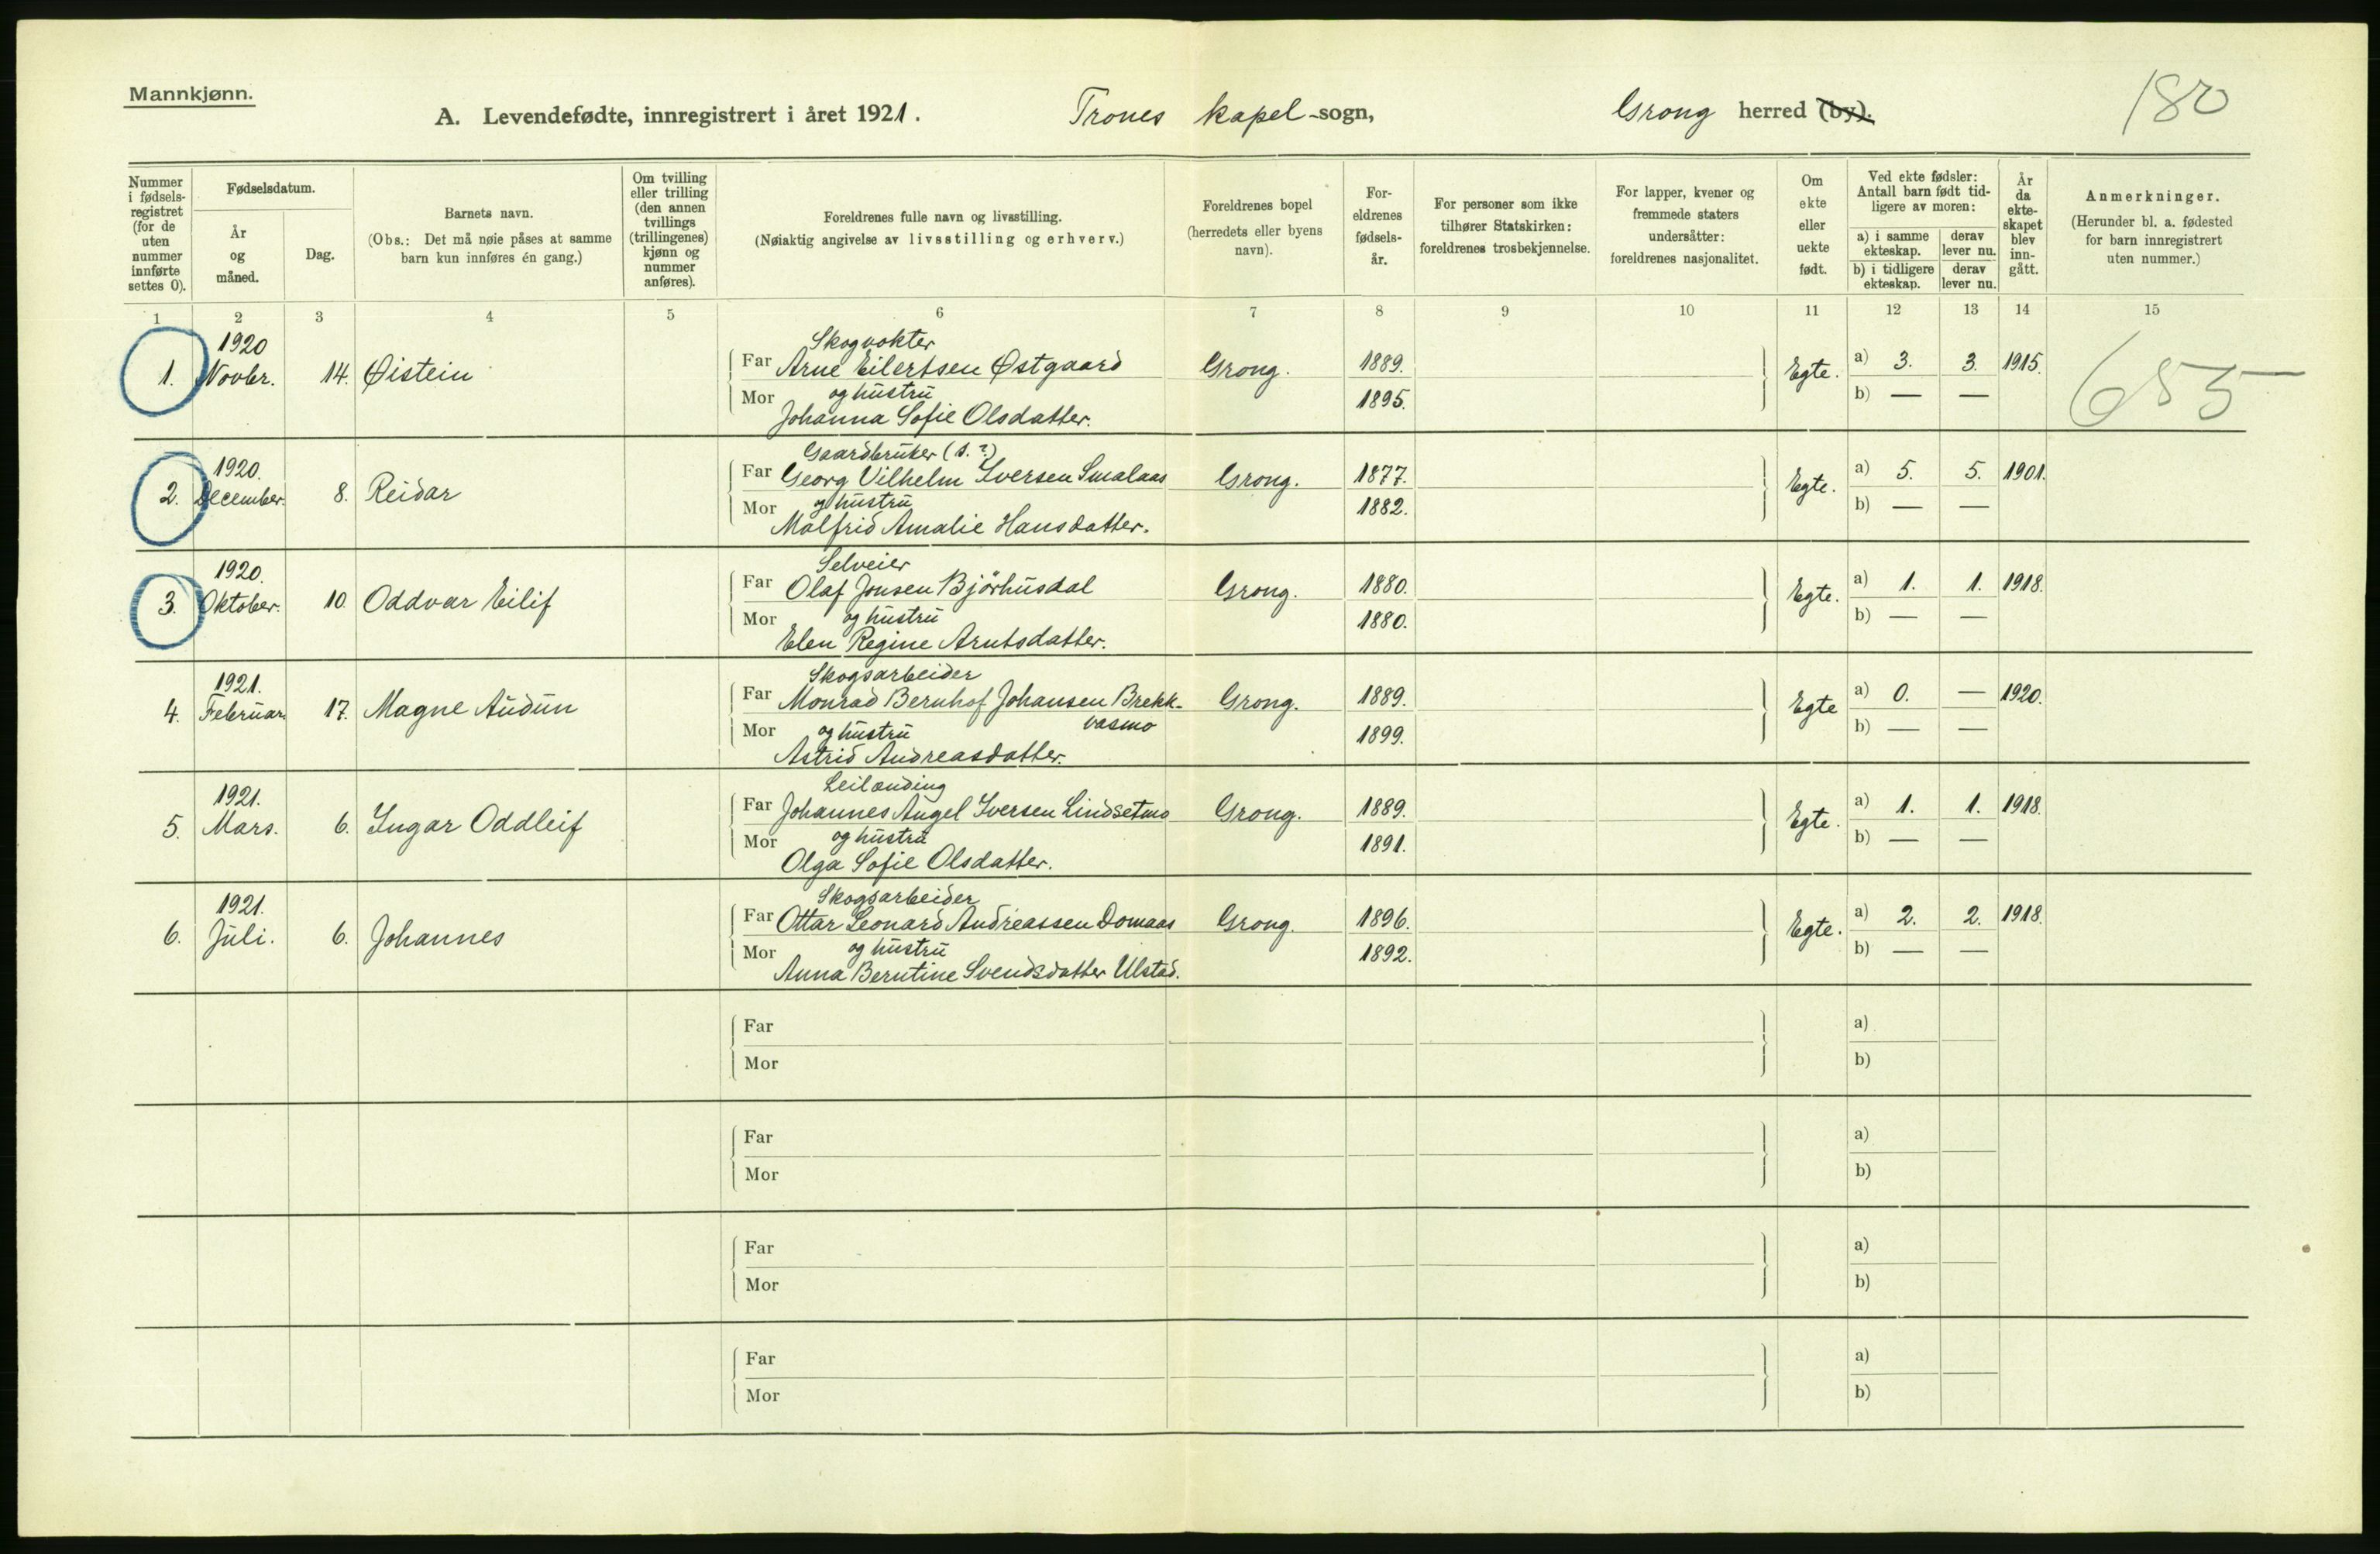 Mannkjønn.
A. Levendefødte, innregistrert i året 1921. Trones kapel-sogn, Grong herred (by). 180
Nummer i fødselsregistret (for de uten nummer innførte settes 0).
Fødselsdatum.
År og måned.
Dag.
Barnets navn.
(Obs.: Det må nøie påses at samme barn kun innføres én gang.)
Om tvilling eller trilling (den annen tvillings (trillingenes) kjønn og nummer anføres).
Foreldrenes fulle navn og livsstilling.
(Nøiaktig angivelse av livsstilling og erhverv.)
Foreldrenes bopel (herredets eller byens navn).
Foreldrenes fødselsår.
For personer som ikke tilhører Statskirken: foreldrenes trosbekjennelse.
For lapper, kvener og fremmede staters undersåtter: foreldrenes nasjonalitet.
Om ekte eller uekte født.
Ved ekte fødsler: Antall barn født tidligere av moren:
a) i samme ekteskap. derav lever nu.
b) i tidligere ekteskap. derav lever nu.
År da ekteskapet blev inngått.
Anmerkninger.
(Herunder bl. a. fødested for barn innregistrert uten nummer.)
1 2 3 4 5 6 7 8 9 10 11 12 13 14 15
1920 Skogvokter
1. Novbr. 14. Øistein Far Arne Eilertsen Østgaard Grong. 1889. Egte. a) 3. 3. 1915. 655
Mor og hustru 1895. b) — —
Johanna Sofie Olsdatter.
1920. Gaardbruker (s.?)
2. December. 8. Reidar Far Georg Vilhelm Iversen Smalaas Grong. 1877. Egte. a) 5. 5. 1901.
Mor og hustru 1882. b) — —
Malfrid Amalie Hansdatter.
1920. Selveier
3. Oktober. 10. Oddvar Eilif Far Olaf Jonsen Bjørhusdal Grong. 1880. Egte. a) 1. 1. 1918.
Mor og hustru 1880. b) — —
Elen Regine Arntsdatter.
1921. Skogsarbeider
4. Februar. 17. Magne Audun Far Monrad Bernhof Johansen Brekk- Grong. 1889. Egte a) 0. — 1920.
vasmo
Mor og hustru 1899. b) — —
Astrid Andreasdatter.
1921. Leilænding
5. Mars. 6. Ingar Oddleif Far Johannes Angel Iversen Lindsetmo Grong. 1889. Egte. a) 1. 1. 1918.
Mor og hustru 1891. b) — —
Olga Sofie Olsdatter.
1921. Skogsarbeider
6. Juli. 6. Johannes Far Ottar Leonard Andreassen Domaas Grong. 1896. Egte. a) 2. 2. 1918.
Mor og hustru 1892. b) — —
Anna Berntine Svendsdatter Ulstad.
Far a)
Mor b)
Far a)
Mor b)
Far a)
Mor b)
Far a)
Mor b)